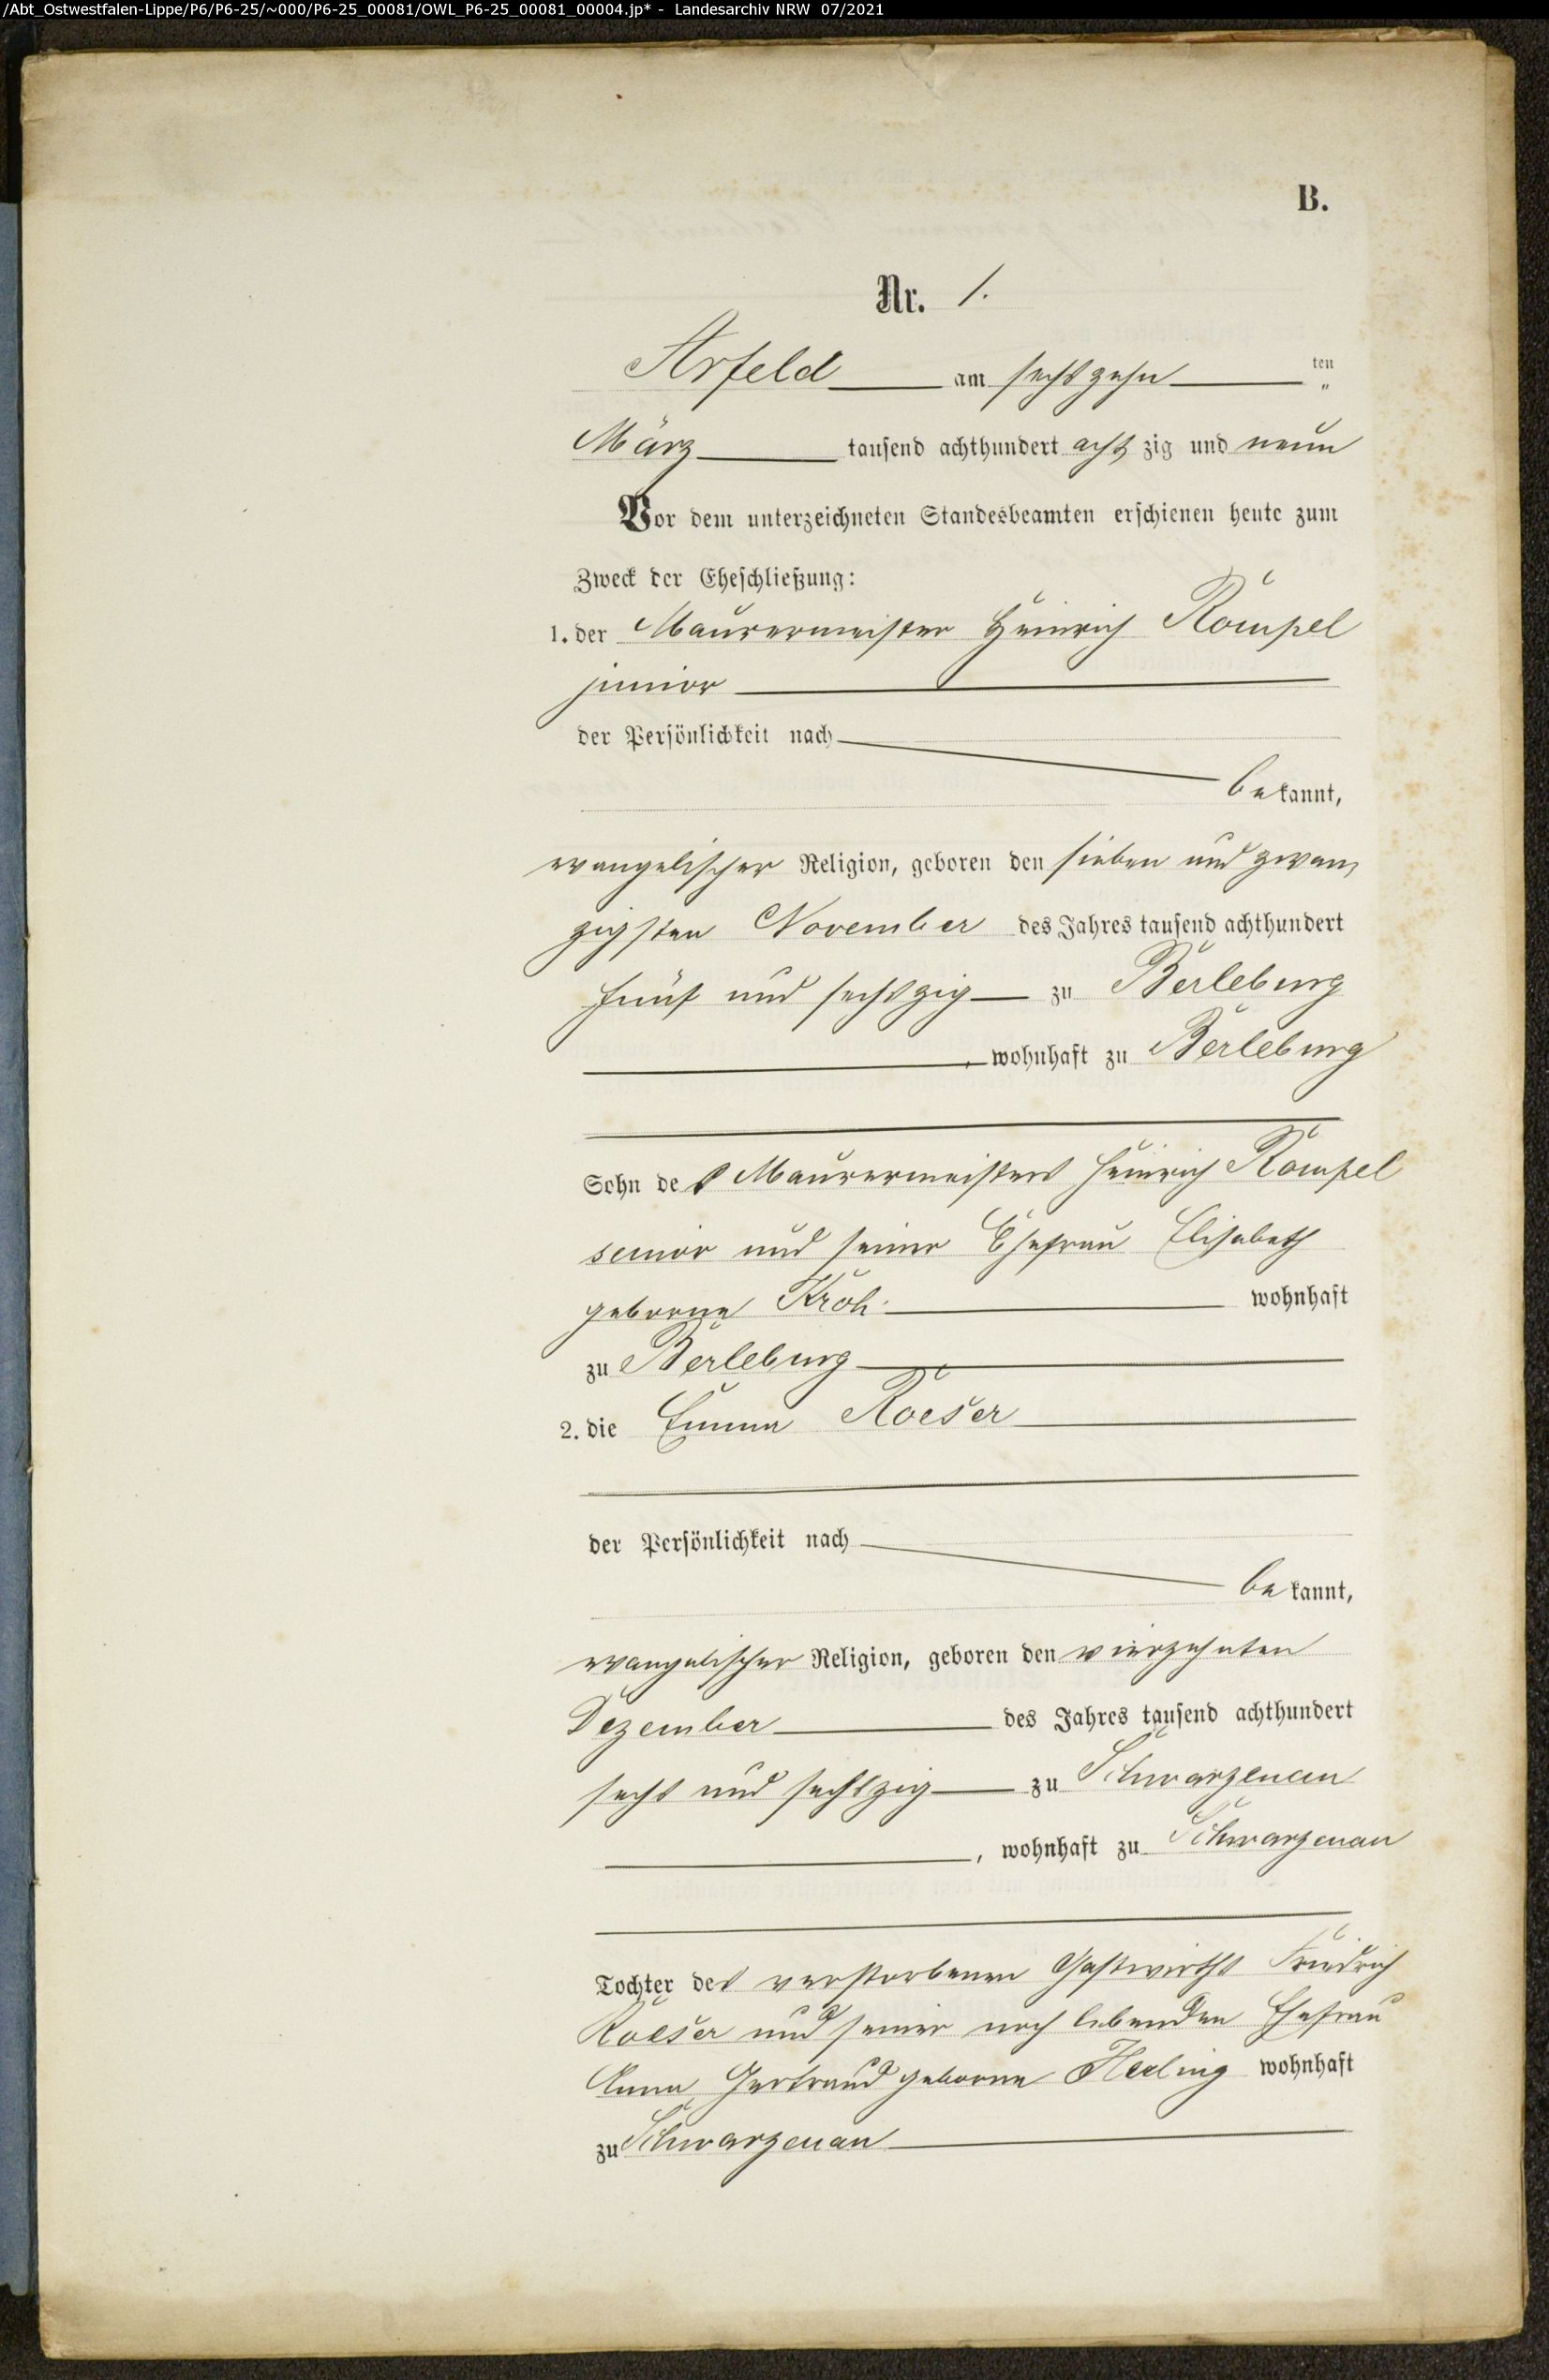 /Abt_Ostwestfalen-Lippe/P6/P6-25/~000/P6-25_00081/OWL_P6-25_00081_00004.jp* - Landesarchiv NRW 07/2021
B.
Nr. 1.
Arfeld am sechszehn ten
März tausend achthundert acht zig und neun
Vor dem unterzeichneten Standesbeamten erschienen heute zum
Zweck der Eheschließung:
1. der Maurermeister Heinrich Rompel
junior
der Persönlichkeit nach
be kannt,
evangelischer Religion, geboren den sieben und zwan
zigsten November des Jahres tausend achthundert
fünf und sechszig zu Berleburg
, wohnhaft zu Berleburg
Sohn des Maurermeisters Heinrich Rompel
senior und seiner Ehefrau Elisabeth
geborne Kroh wohnhaft
zu Berleburg
2. die Emma Roeser
der Persönlichkeit nach
be kannt,
evangelischer Religion, geboren den vierzehnten
Dezember des Jahres tausend achthundert
sechs und sechszig zu Schwarzenau
, wohnhaft zu Schwarzenau
Tochter des verstorbenen Gastwirths Friedrich
Roeser und seiner noch lebenden Ehefrau
Anna Gertraud geborne wohnhaft
zu Schwarzenau